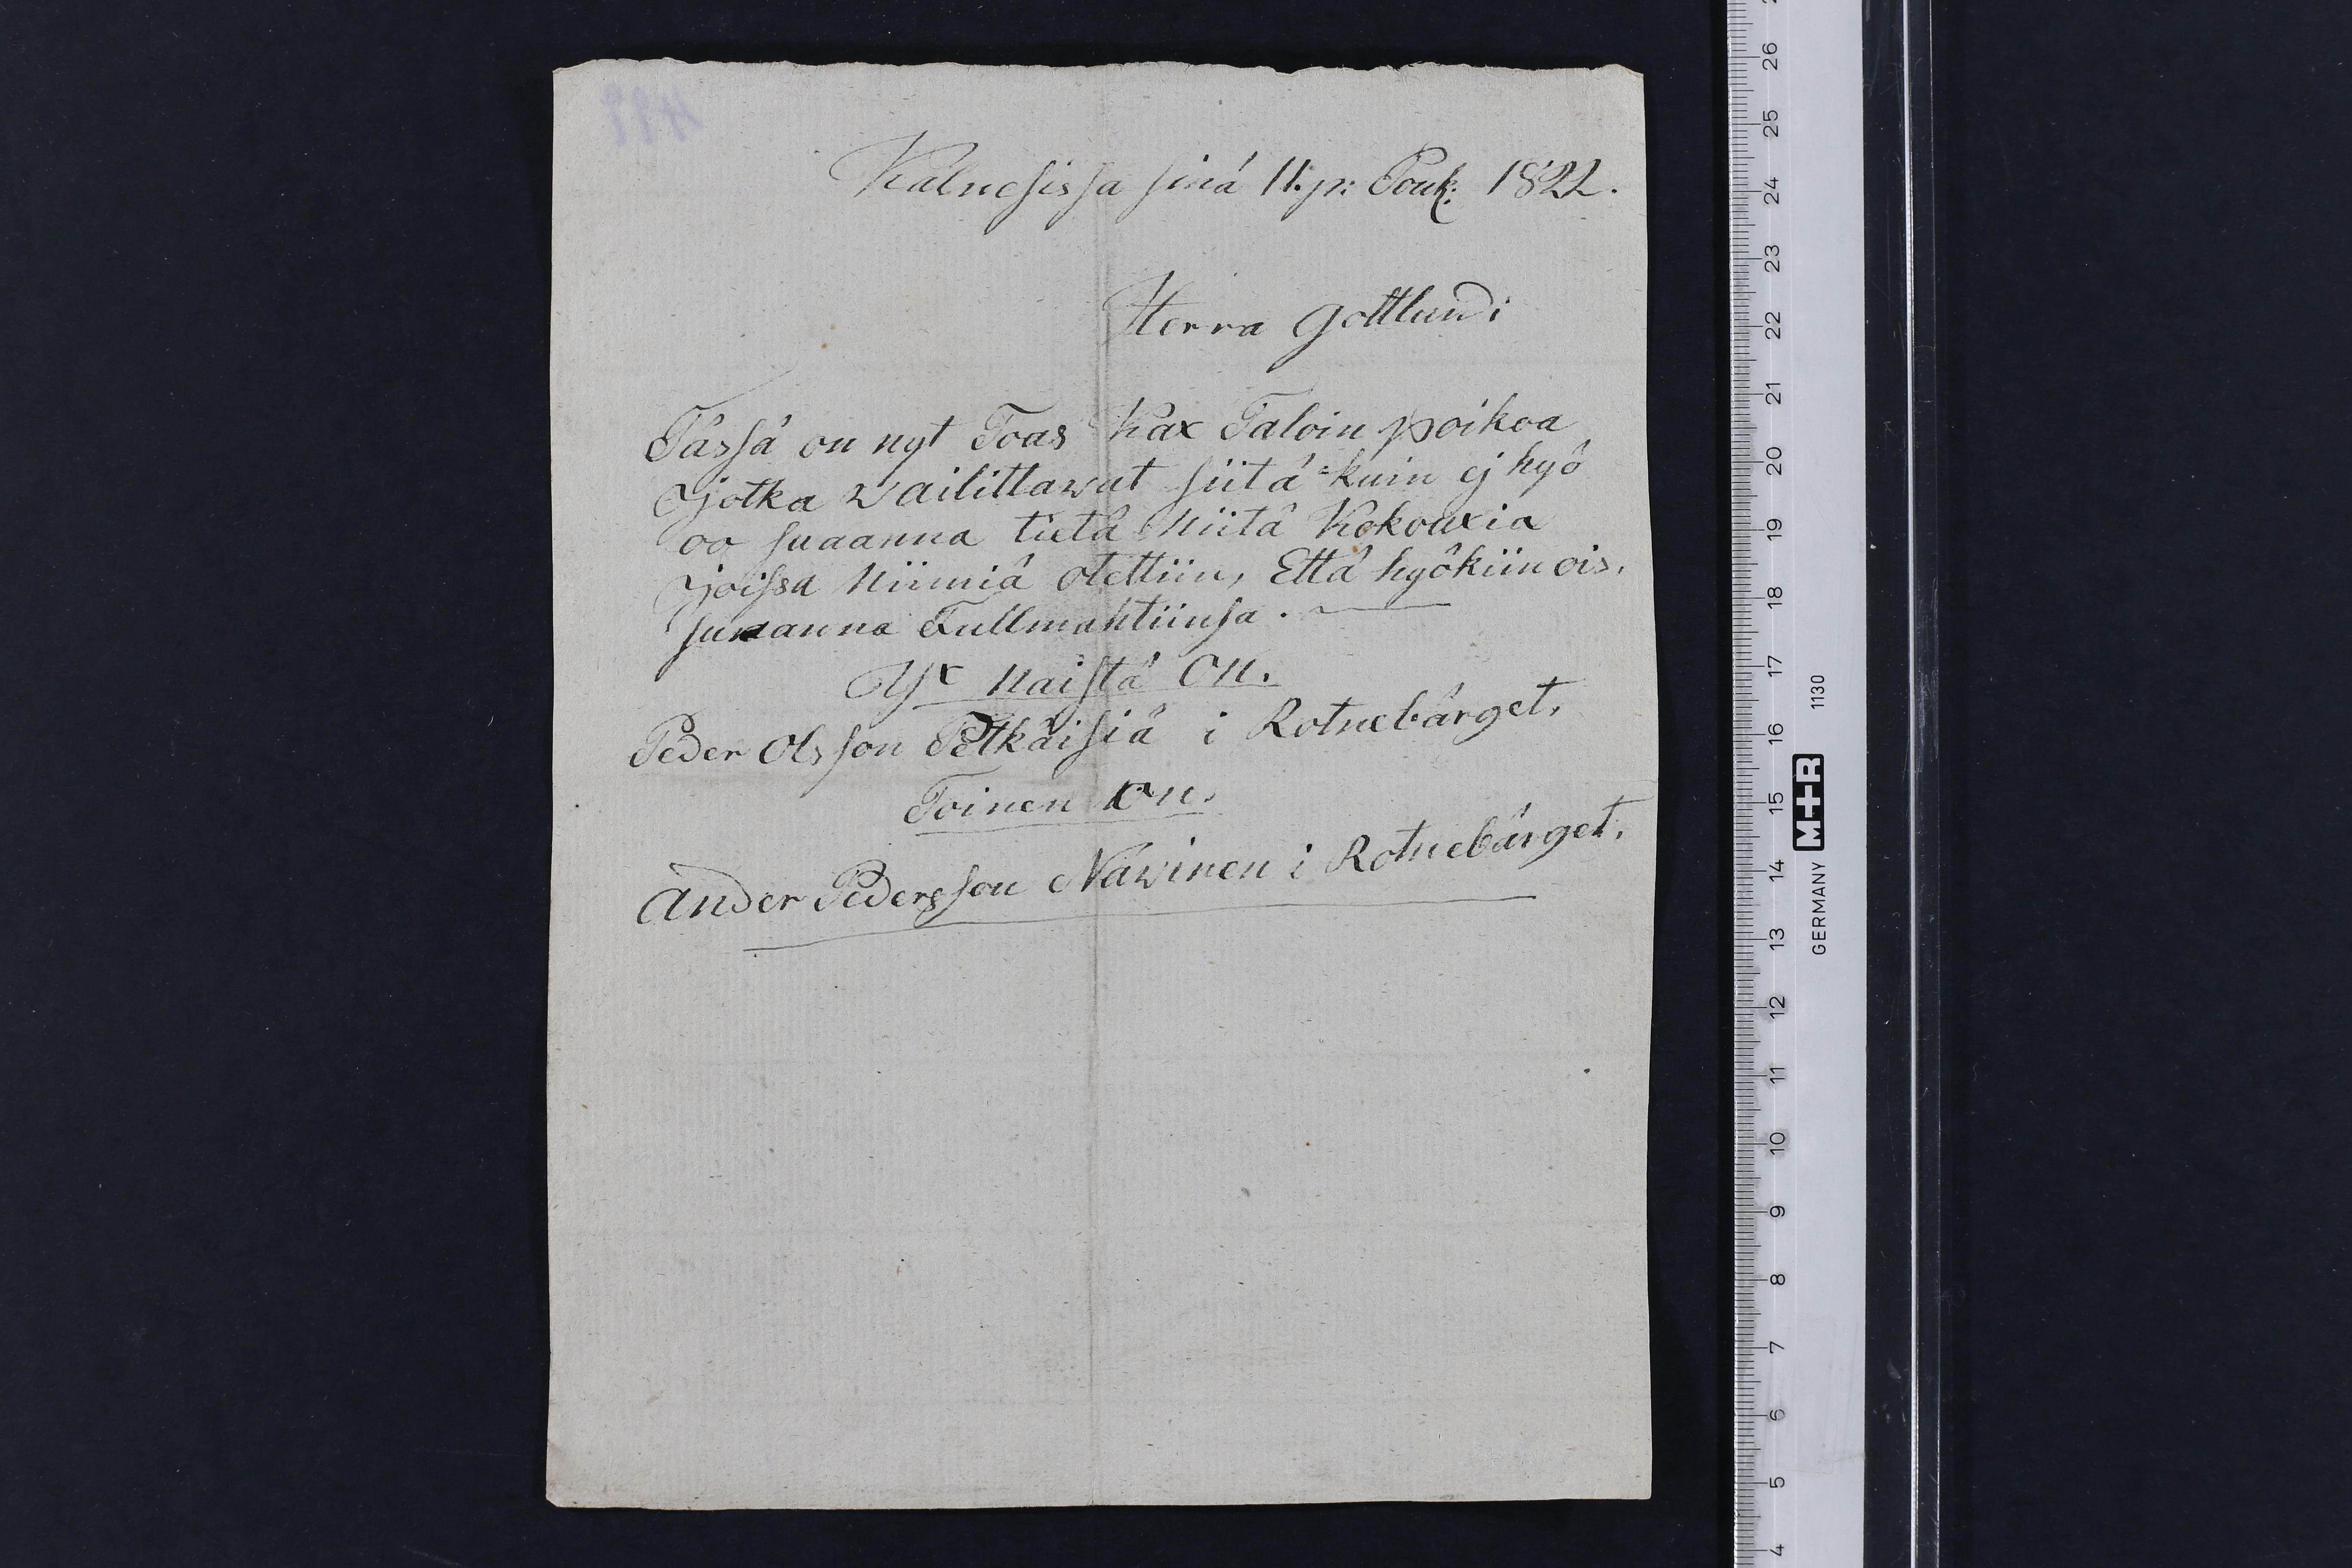 Kälnesissa sinä 11:pi Touk: 1822.
Herra Gottlundi
Tässä on nyt Toas Kax Taloin poikoa
jotka wailittawat siitä kuin ej hyö
oo suaanna tietä niitä Kokouxia
joissa niimiä otettiin, Että hyökiin ois,
suaanna Fullmahtiinsa.
Yx naistä on.
Peder Olsson Pетkäisiä i Rotnebärget,
Toinen on.
Ander Pedersson Näwinen i Rotnebärget,
26
25
24
23
22
21
20
19
18
17
16
15
14
13
12
11
10
9
8
7
6
5
4
GERMANY M+R 1130